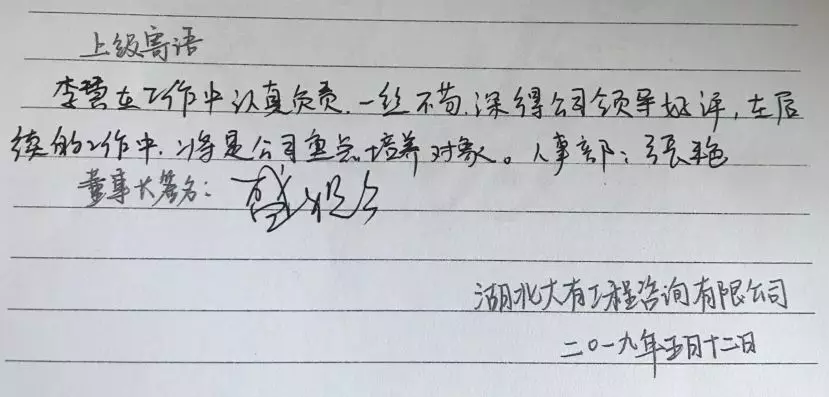 上级寄语
李慧在工作中认真负责,一丝不苟,深得公司领导好评,在后
续的工作中,将是公司重点培养对象。人事部:张艳
董事长签名:
湖北大有工程咨询有限公司
二〇一九年五月十二日